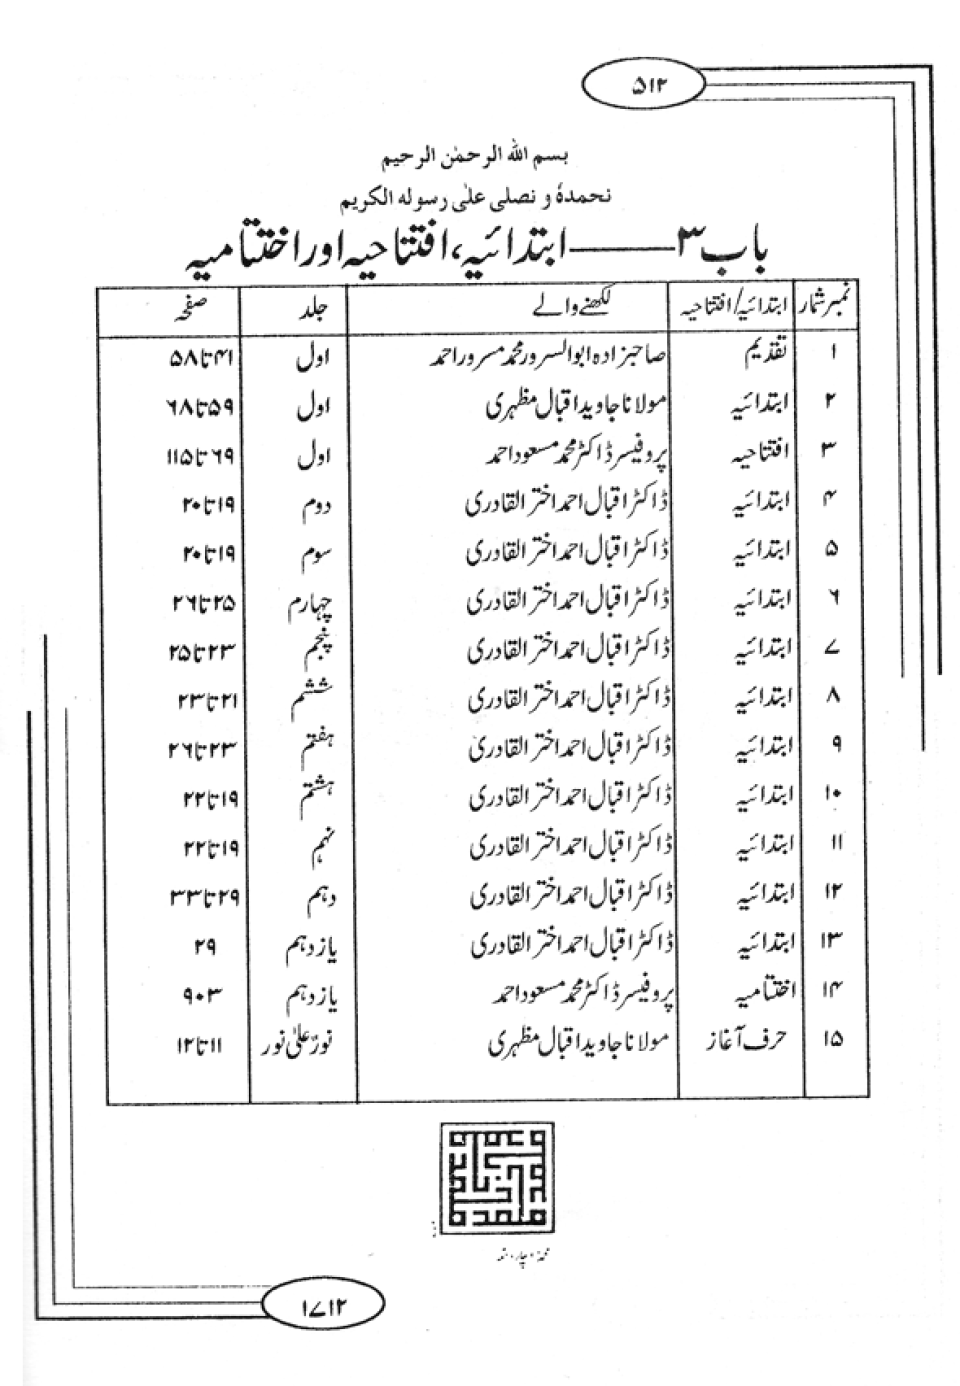 ۵۱۲
بسم الله الرحمٰن الرحیم
نحمدہٗ و نصلی علیٰ رسولہ الکریم
باب ۳ ——— ابتدائیہ، افتتاحیہ اور اختتامیہ
نمبر شمار ابتدائیہ/افتتاحیہ لکھنے والے جلد صفحہ
۱ تقدیم صاحبزادہ ابوالسرور محمد مسرور احمد اول ۴۱ تا ۵۸
۲ ابتدائیہ مولانا جاوید اقبال مظہری اول ۵۹ تا ۶۸
۳ افتتاحیہ پروفیسر ڈاکٹر محمد مسعود احمد اول ۶۹ تا ۱۱۵
۴ ابتدائیہ ڈاکٹر اقبال احمد اختر القادری دوم ۱۹ تا ۲۰
۵ ابتدائیہ ڈاکٹر اقبال احمد اختر القادری سوم ۱۹ تا ۲۰
۶ ابتدائیہ ڈاکٹر اقبال احمد اختر القادری چہارم ۲۵ تا ۲۶
۷ ابتدائیہ ڈاکٹر اقبال احمد اختر القادری پنجم ۲۳ تا ۲۵
۸ ابتدائیہ ڈاکٹر اقبال احمد اختر القادری ششم ۲۱ تا ۲۳
۹ ابتدائیہ ڈاکٹر اقبال احمد اختر القادری ہفتم ۲۳ تا ۲۶
۱۰ ابتدائیہ ڈاکٹر اقبال احمد اختر القادری ہشتم ۱۹ تا ۲۲
۱۱ ابتدائیہ ڈاکٹر اقبال احمد اختر القادری نہم ۱۹ تا ۲۲
۱۲ ابتدائیہ ڈاکٹر اقبال احمد اختر القادری دہم ۲۹ تا ۳۳
۱۳ ابتدائیہ ڈاکٹر اقبال احمد اختر القادری یازدہم ۲۹
۱۴ اختتامیہ پروفیسر ڈاکٹر محمد مسعود احمد یازدہم ۹۰۳
۱۵ حرف آغاز مولانا جاوید اقبال مظہری نورٌ علیٰ نور ۱۱ تا ۱۲
۱۷۱۲